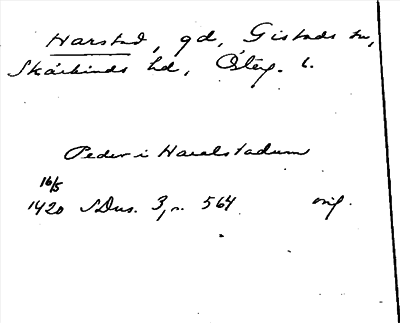 Harstad, gd, Gistads sn,
Skärkinds hd, Östg. l.
Peder i Haralstadum
16/5
1420 SDns. 3, n. 564 orig.